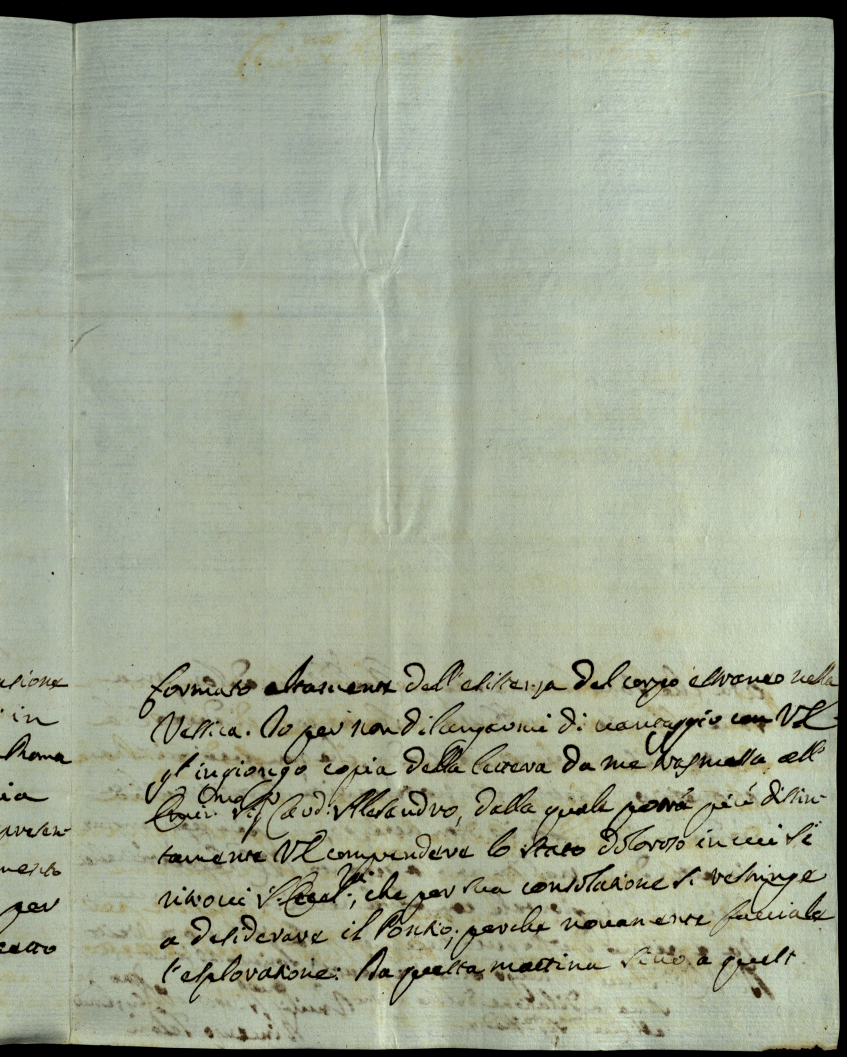 usione
in
Roma
ia
presen-
mento
per
formato altamente dell'esistenza del corpo estraneo nella
Vessica. Io per non dilungarmi di vantaggio con VS
gl'ingiongo copia della lettera da me trasmessa all'
Emin. Sig. Card. Alesandro, dalla quale potrà più distin-
tamente VS comprendere lo stato doloroso in cui si
ritrovi che per sua consolazione si restringe
a desiderare il Ponzio, perche novamente facciale
l'esplorazione. Da questa mattina sino a quest